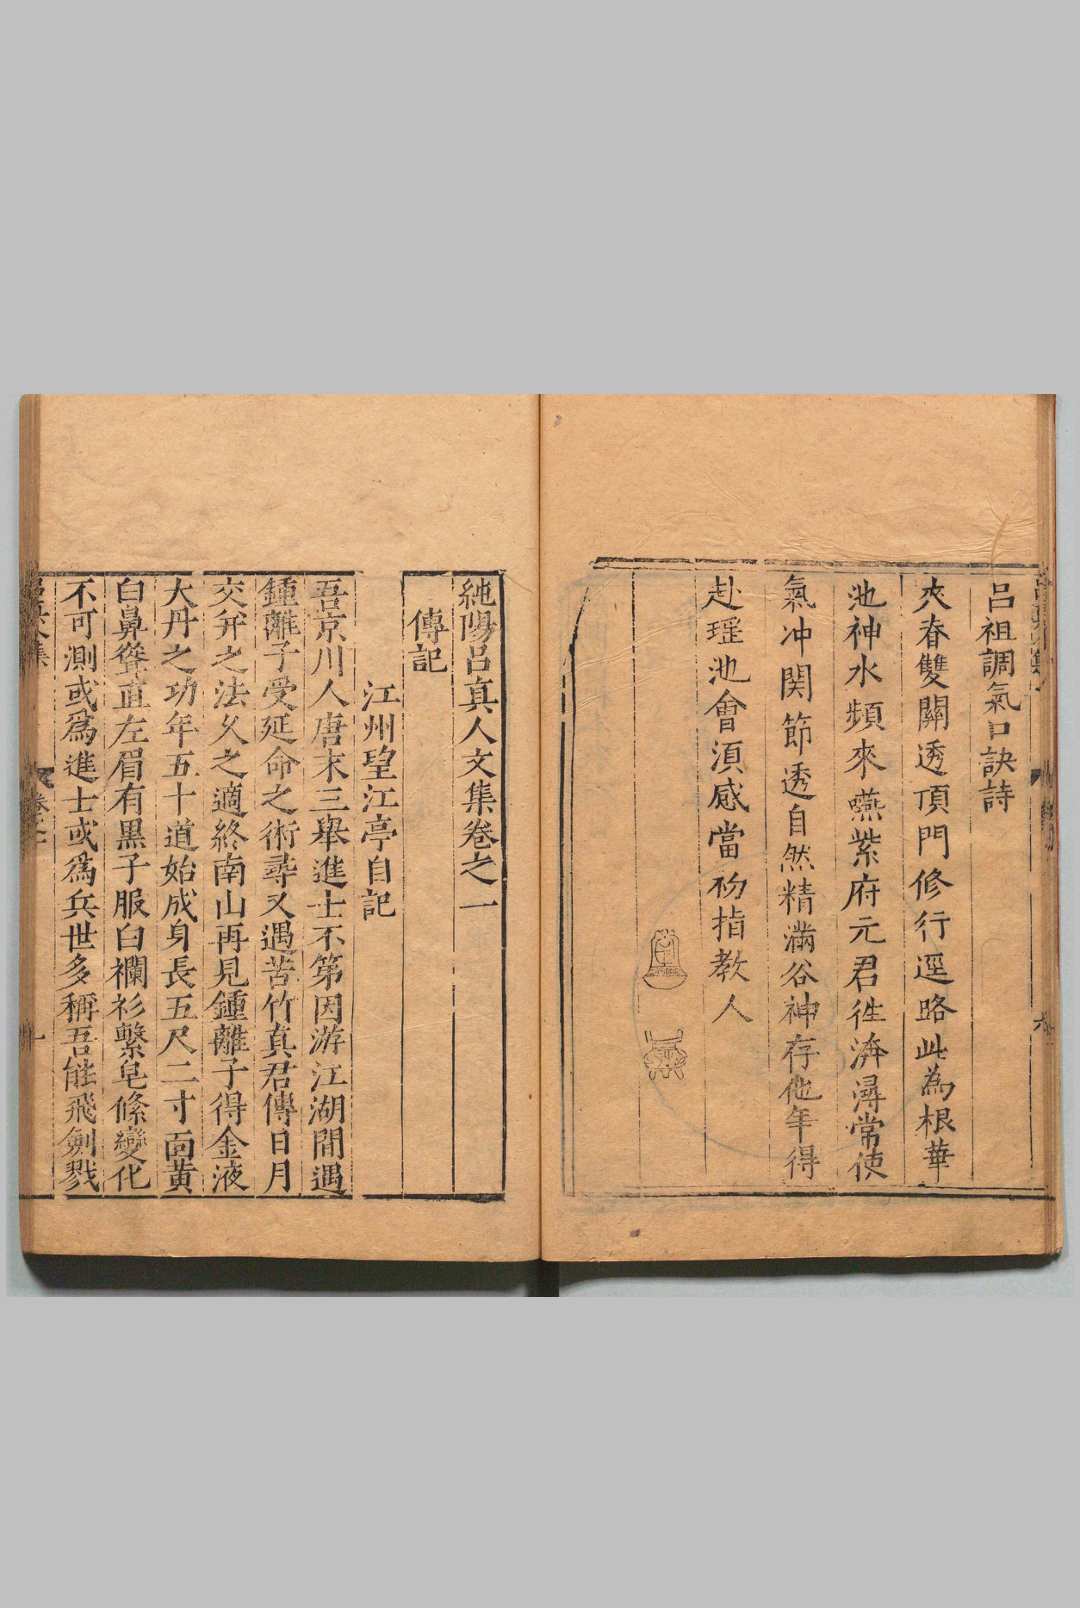 呂祖調氣口訣詩
夾脊雙關透頂門修行逕路此為根華
池神水頻來嚥紫府元君徃濟潯常使
氣冲関節透自然精滿谷神存他年得
赴瑶池會湏感當初指教人
純陽呂真人文集卷之一
傳記
江州望江亭自記
吾京川人唐末三舉進士不第因游江湖間遇
鍾離子受延命之術尋又遇苦竹真君傳日月
交幷之法久之適終南山再見鍾離子得金液
大丹之功年五十道始成身長五尺二寸面黄
白鼻聳直左眉有黒子服白襴衫繫皂絛變化
不可測或爲進士或爲兵世多稱吾能飛劍戮